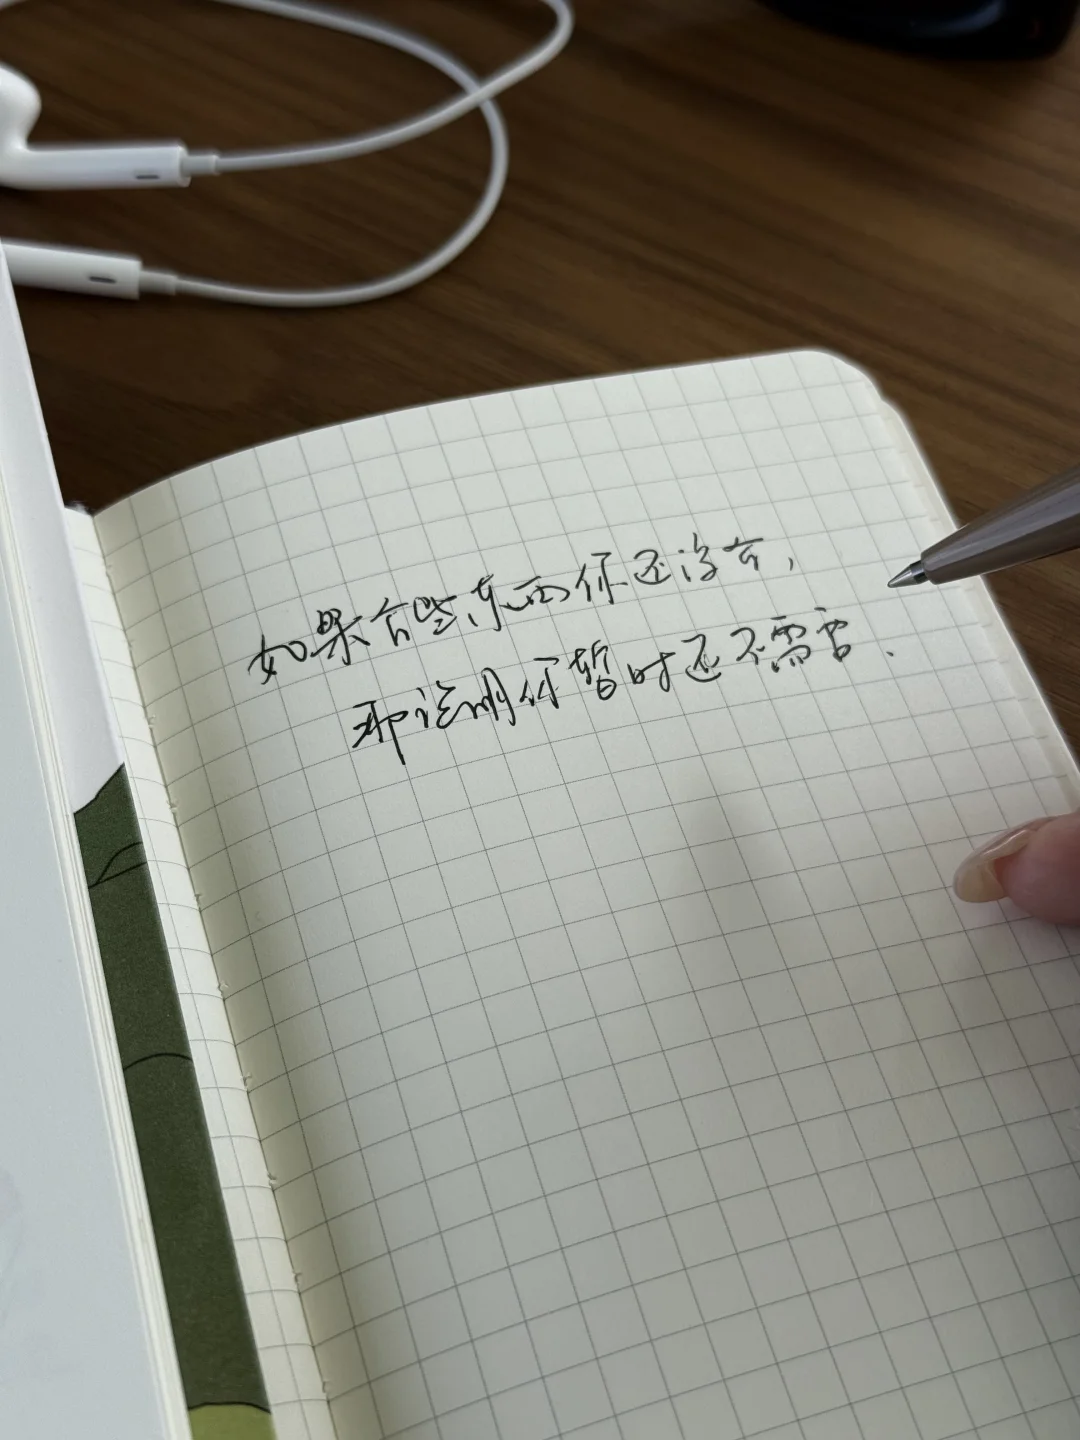 如果有些东西你还没有，
那说明你暂时还不需要.